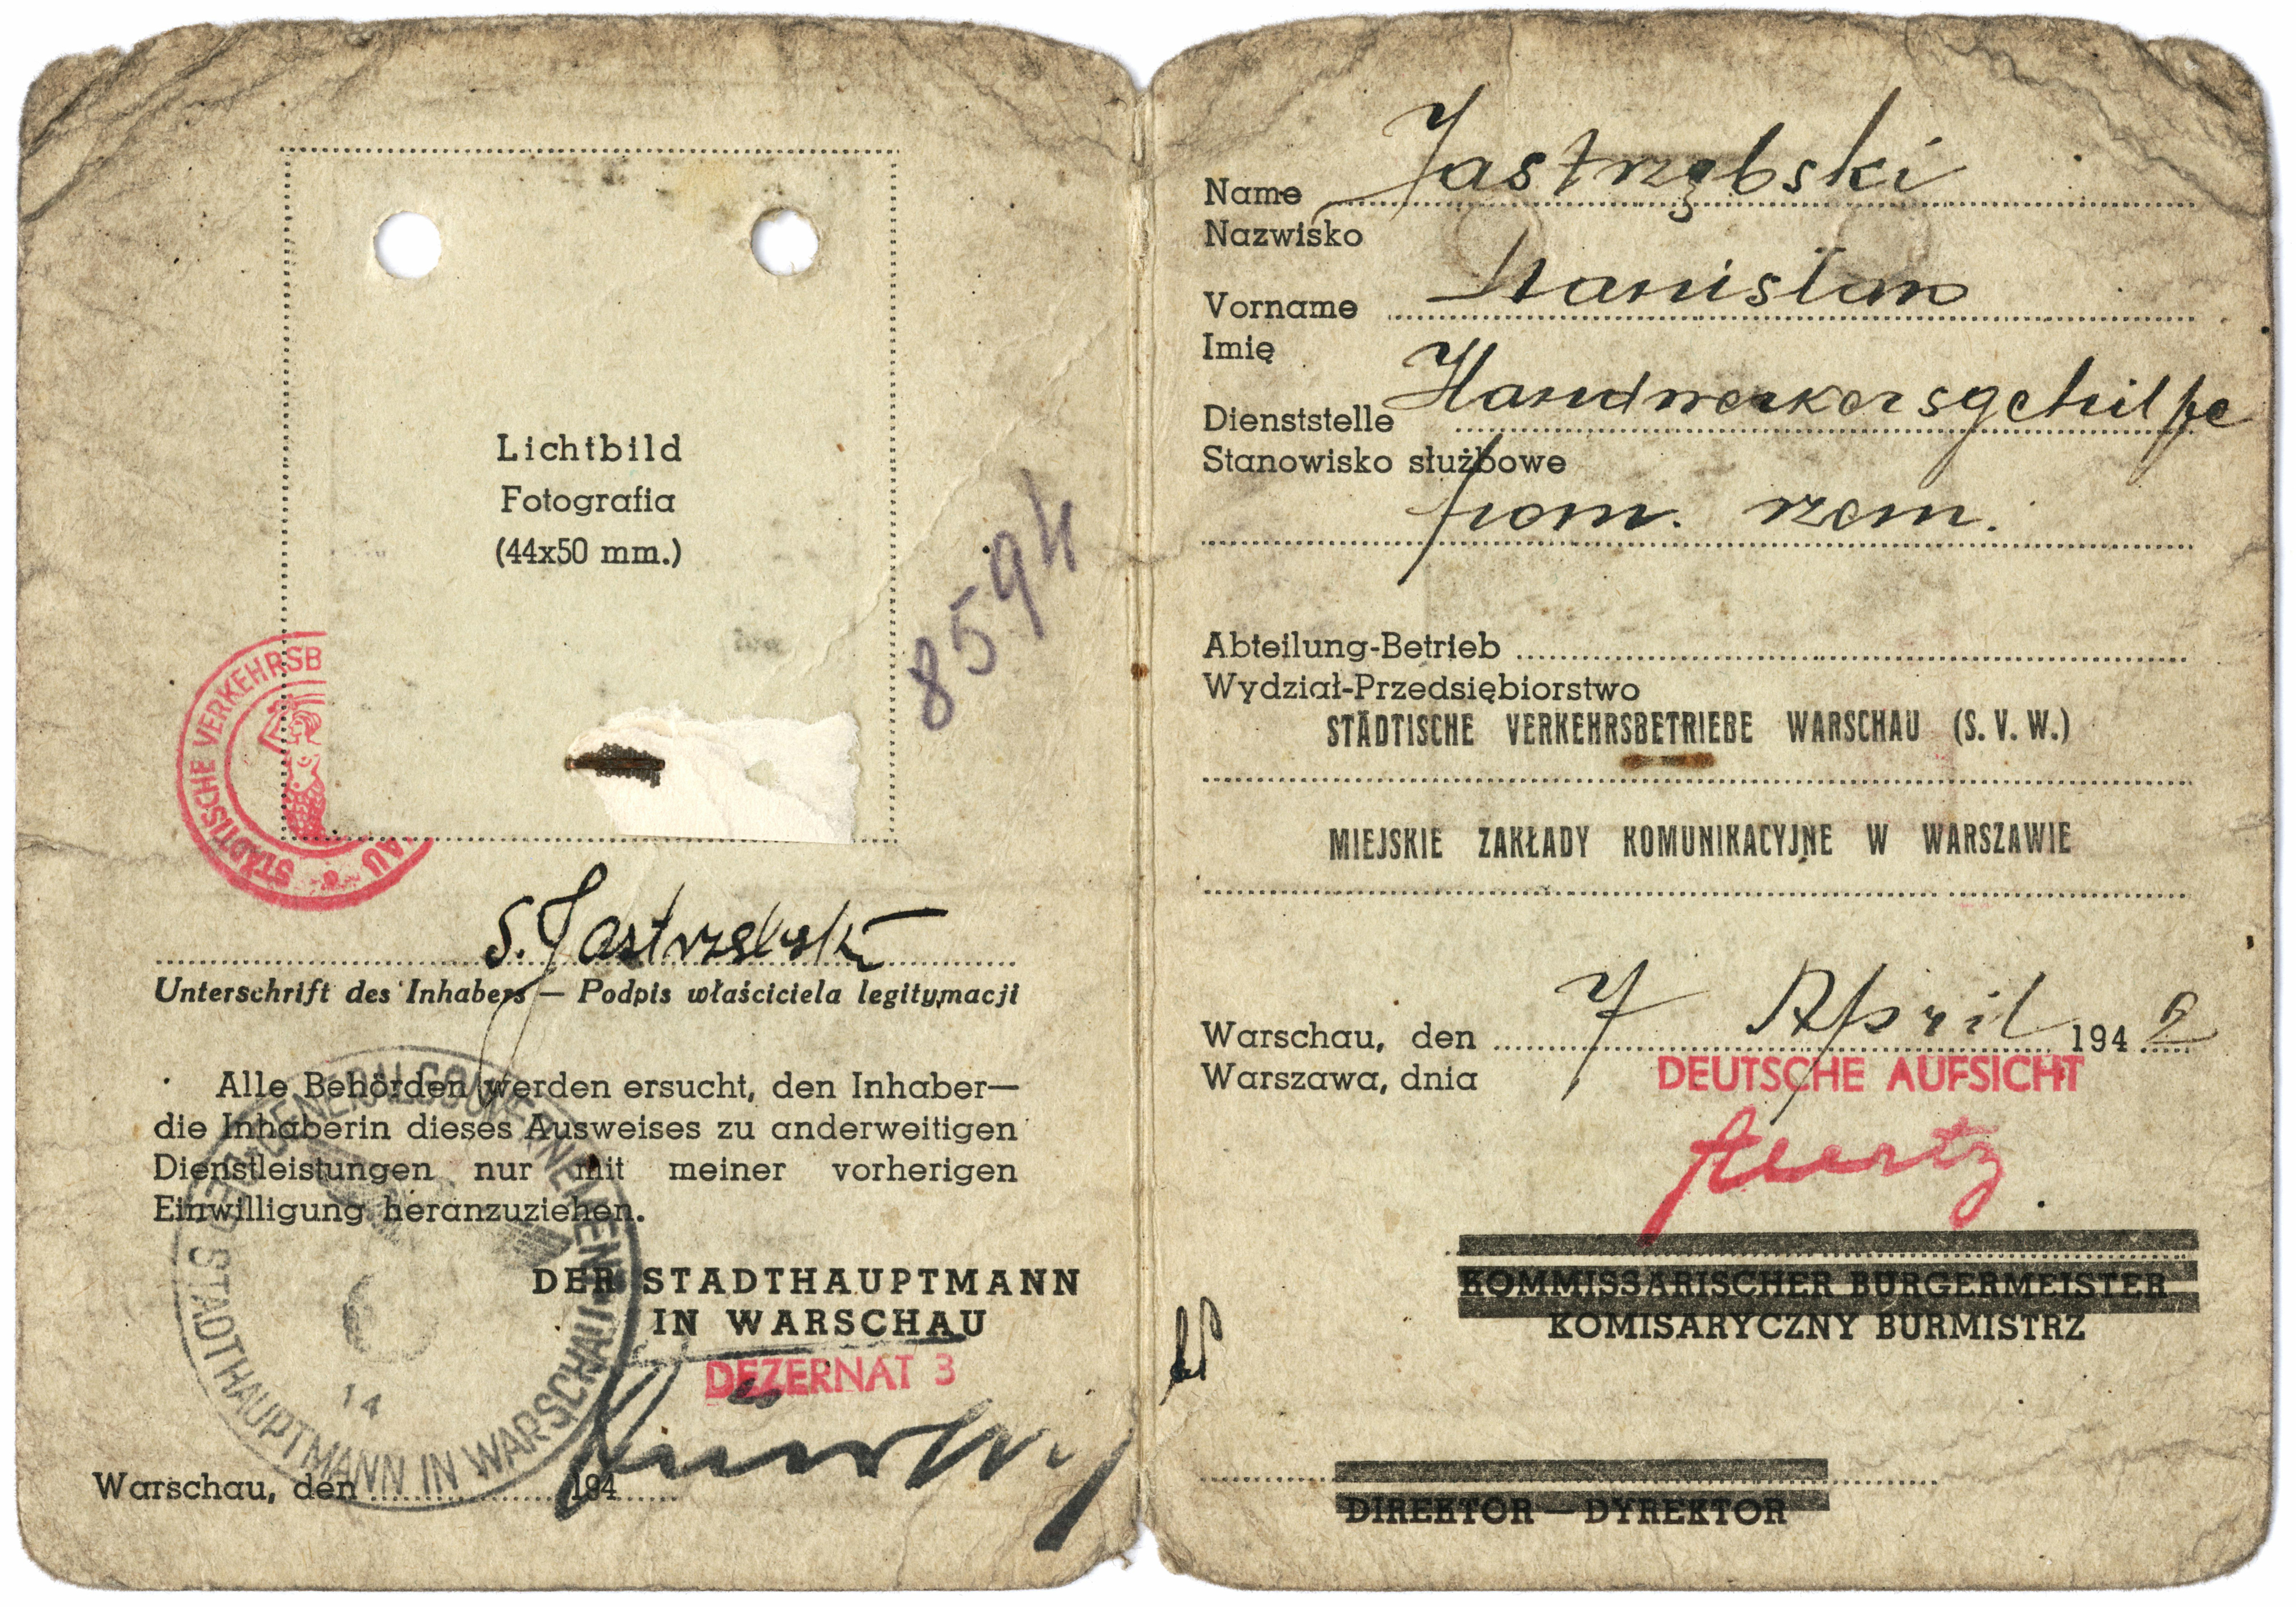 Lichtbild
Fotografia
(44x50 mm.)
8594
STÄDTISCHE VERKEHRSB
AU
S. Jastrzębski
Unterschrift des Inhabers — Podpis właściciela legitymacji
Alle Behörden werden ersucht, den Inhaber—
die Inhaberin dieses Ausweises zu anderweitigen
Dienstleistungen nur mit meiner vorherigen
Einwilligung heranzuziehen.
GENERALGOUVERNEMENT
DER STADTHAUPTMANN IN WARSCHAU
14
DER STADTHAUPTMANN
IN WARSCHAU
DEZERNAT 3
Warschau, den 194
Name Jastrzębski
Nazwisko
Vorname Stanisław
Imię
Dienststelle Handwerkersgehilfe
Stanowisko służbowe
pom. rzem.
Abteilung-Betrieb
Wydział-Przedsiębiorstwo
STÄDTISCHE VERKEHRSBETRIEBE WARSCHAU (S. V. W.)
MIEJSKIE ZAKŁADY KOMUNIKACYJNE W WARSZAWIE
Warschau, den 7 April 1942
Warszawa, dnia
DEUTSCHE AUFSICHT
KOMMISSARISCHER BÜRGERMEISTER
KOMISARYCZNY BURMISTRZ
DIREKTOR — DYREKTOR